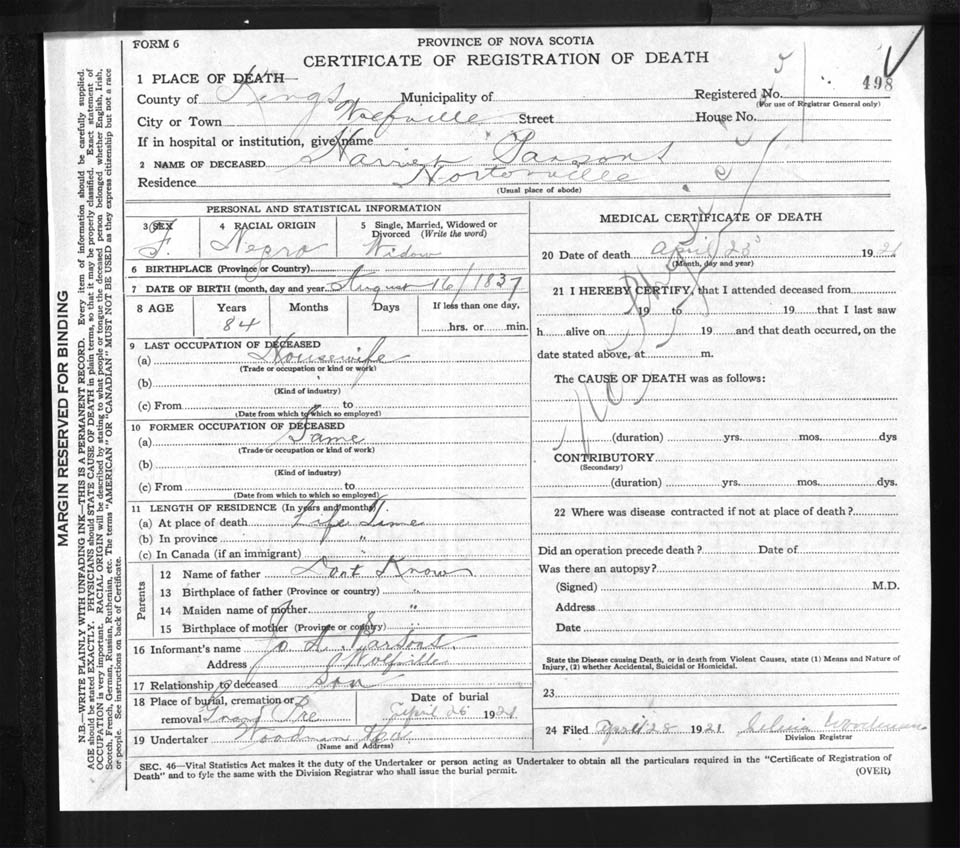 FORM 6
PROVINCE OF NOVA SCOTIA
CERTIFICATE OF REGISTRATION OF DEATH
5
498
1 PLACE OF DEATH—
County of Kings Municipality of Registered No.
(For use of Registrar General only)
City or Town Wolfville Street House No.
If in hospital or institution, give name
2 NAME OF DECEASED Harriet Parsons
Residence Hortonville
(Usual place of abode)
PERSONAL AND STATISTICAL INFORMATION
3 SEX
F.
4 RACIAL ORIGIN
Negro
5 Single, Married, Widowed or Divorced (Write the word)
Widow
6 BIRTHPLACE (Province or Country)
7 DATE OF BIRTH (month, day and year) August 16/1837
8 AGE Years Months Days If less than one day,
84 hrs. or min.
9 LAST OCCUPATION OF DECEASED
(a) Housewife
(Trade or occupation or kind or work)
(b)
(Kind of industry)
(c) From to
(Date from which to which so employed)
10 FORMER OCCUPATION OF DECEASED
(a) Same
(Trade or occupation or kind of work)
(b)
(Kind of industry)
(c) From to
(Date from which to which so employed)
11 LENGTH OF RESIDENCE (In years and months)
(a) At place of death Life Time
(b) In province "
(c) In Canada (if an immigrant)
Parents
12 Name of father Dont Know
13 Birthplace of father (Province or country) "
14 Maiden name of mother "
15 Birthplace of mother (Province or country)
16 Informant's name Jo. A. Parsons
Address Wolfville
17 Relationship to deceased son
18 Place of burial, cremation or removal Grand Pre
Date of burial
April 26 1921
19 Undertaker Woodman
(Name and Address)
MEDICAL CERTIFICATE OF DEATH
20 Date of death April 23 1921
(Month, day and year)
21 I HEREBY CERTIFY, that I attended deceased from
19 to 19 that I last saw
h alive on 19 and that death occurred, on the
date stated above, at m.
The CAUSE OF DEATH was as follows:
No Physician
(duration) yrs. mos. dys
CONTRIBUTORY
(Secondary)
(duration) yrs. mos. dys.
22 Where was disease contracted if not at place of death?
Did an operation precede death? Date of
Was there an autopsy?
(Signed) M.D.
Address
Date
State the Disease causing Death, or in death from Violent Causes, state (1) Means and Nature of
Injury, (2) whether Accidental, Suicidal or Homicidal.
23
24 Filed April 28 1921 Woodman
Division Registrar
SEC. 46—Vital Statistics Act makes it the duty of the Undertaker or person acting as Undertaker to obtain all the particulars required in the "Certificate of Registration of
Death" and to fyle the same with the Division Registrar who shall issue the burial permit.
(OVER)
MARGIN RESERVED FOR BINDING
N.B.—WRITE PLAINLY WITH UNFADING INK—THIS IS A PERMANENT RECORD. Every item of information should be carefully supplied.
AGE should be stated EXACTLY. PHYSICIANS should STATE CAUSE OF DEATH in plain terms, so that it may be properly classified. Exact statement of
OCCUPATION is very important. RACIAL ORIGIN will be described by stating to what people or tongue the deceased person belonged whether English, Irish,
Scotch, French, German, Russian, Ruthenian, etc. The terms "AMERICAN" OR "CANADIAN" MUST NOT BE USED as they express citizenship but not a race
or people. See instructions on back of Certificate.